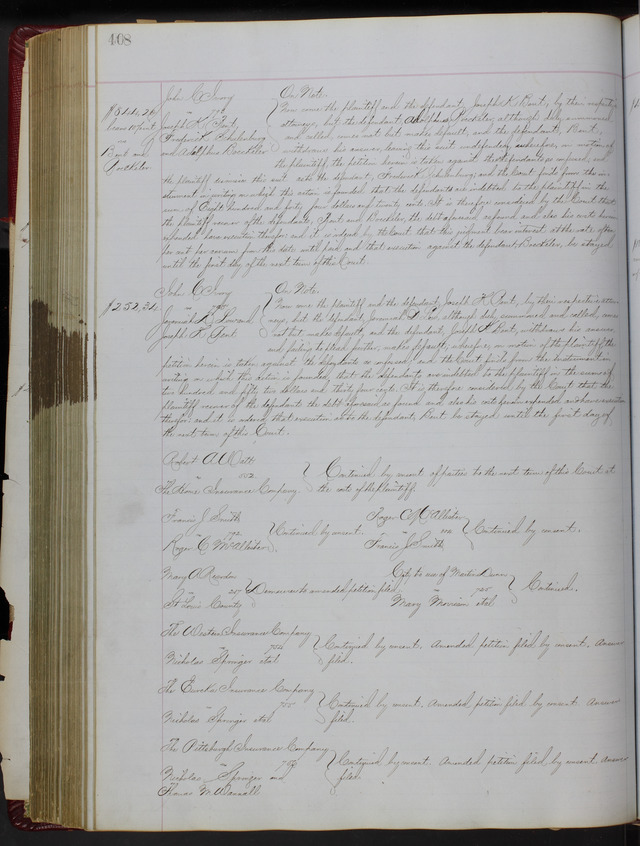 408
John C Ivory
On Note.
$844.20
Now come the plaintiff and the defendant, Joseph K. Pent, by their respective
Joseph K. Pent,
attorneys, but the defendant Adolphus Boeckeler, although duly summoned
Frederick Shulenburg
and called, comes not but makes default, and the defendant, Pent,
and Adolphus Boeckeler
withdraws his answer, leaving this suit undefended, wherefore, on motion of
the plaintiff, the petition herein is taken against the defendants as confessed, and
the plaintiff dismisses this suit as to the defendant, Frederick Shulenburg; and the Court finds from the in-
strument in writing on which this action is founded that the defendants are indebted to the plaintiff in the
sum of Eight hundred and forty four dollars and twenty cents. It is therefore considered by the Court that
the plaintiff recover of the defendants, Pent and Boeckeler, the debt aforesaid as found and also his costs herein
expended have execution therefor and it is ordered by the Court that this judgment bear interest at the rate of ten
per cent per annum from this date until paid and that execution against the defendant Boeckeler, be stayed
until the first day of the next term of this Court.
John C Ivory
On Note.
$252.34
Now come the plaintiff and the defendant, Joseph K. Pent, by their respective attor-
neys, but the defendant Jeremiah although duly summoned and called, comes
Joseph K. Pent
not but makes default, and the defendant, Joseph K. Pent, withdraws his answer
and failing to plead further, makes default, wherefore, on motion of the plaintiff the
petition herein is taken against the defendants as confessed, and the Court finds from the instrument in
writing on which this action is founded, that the defendants are indebted to the plaintiff in the sum of
two hundred and fifty two dollars and thirty four cents. It is therefore considered by the Court that the
plaintiff recover of the defendants the debt aforesaid as found and also his costs herein expended and have execution
therefor and it is ordered that execution as to the defendant, Pent be stayed until the first day of
the next term of this Court.
Robert A Watt
Continued by consent of parties to the next term of this Court at
The Home Insurance Company.
the costs of the Plaintiff.
Francis J. Smith
Continued by consent.
Roger C McAllister
Roger C McAllister
Continued by consent.
Francis J. Smith
Mary A Reardon
207
Demurrer to amended petition filed.
St Louis County
City to use of Martin
Continued.
Mary Morrison et al
The Western Insurance Company
Continued by consent. Amended petition filed by consent. Answer
Nicholas Springer et al
filed.
The Eureka Insurance Company
Continued by consent. Amended petition filed by consent. Answer
Nicholas Springer et al
filed.
The Pittsburgh Insurance Company
Continued by consent. Amended petition filed by consent. Answer
Nicholas Springer and
filed.
Thomas W.